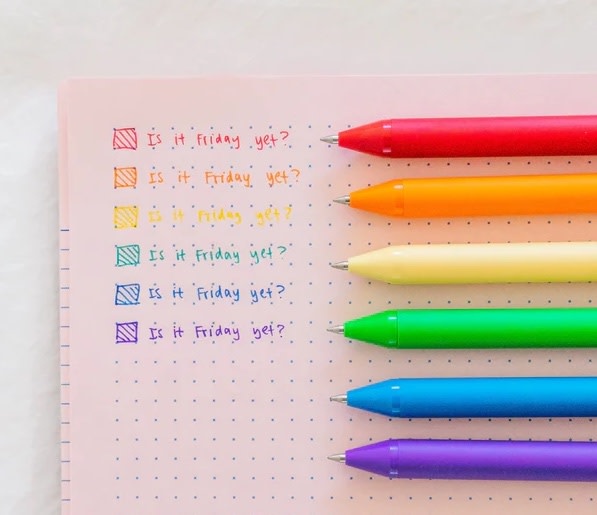 Is it Friday yet?
Is it Friday yet?
Is it Friday yet?
Is it Friday yet?
Is it Friday yet?
Is it Friday yet?